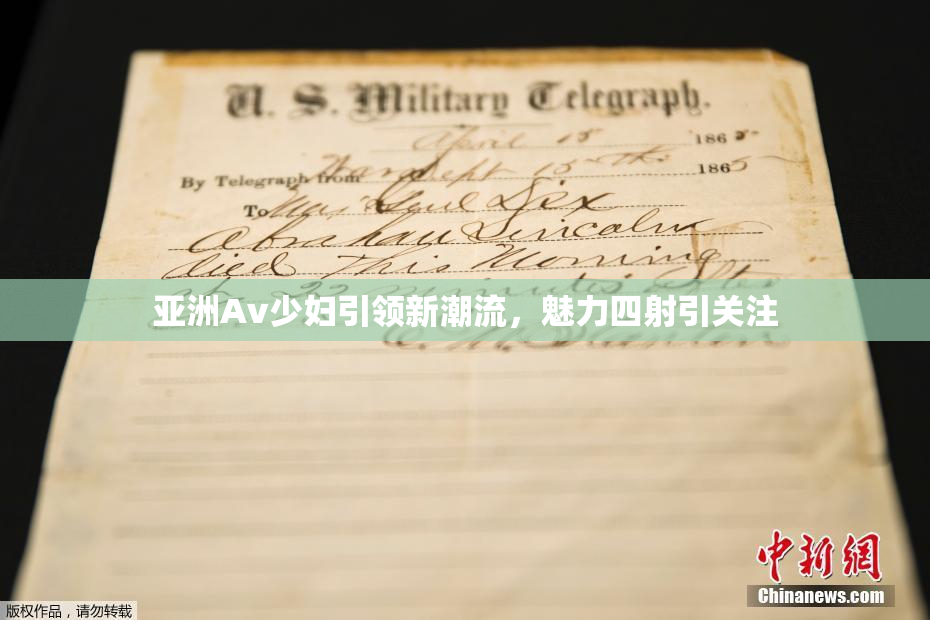 U. S. Military Telegraph.
April 15 1865
By Telegraph from War Dept 15th 1865
To Maj Genl Dix
Abraham Lincoln
died This Morning
at 22 minutes after
亚洲Av少妇引领新潮流，魅力四射引关注
中新网
版权作品，请勿转载
Chinanews.com